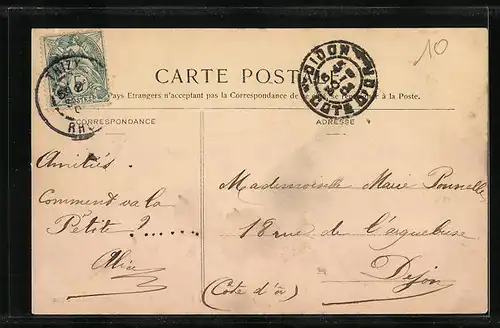 10
CARTE POSTALE
Pays Etrangers n'acceptant pas la Correspondance de à la Poste.
CORRESPONDANCE
ADRESSE
DIJON
COTE D'OR
POSTES
Amitiés.
Comment va la
Petite ?......
Alice
Mademoiselle Marie Ponnelle
18 rue de l'arquebuse
Dijon
(Cote d'or)